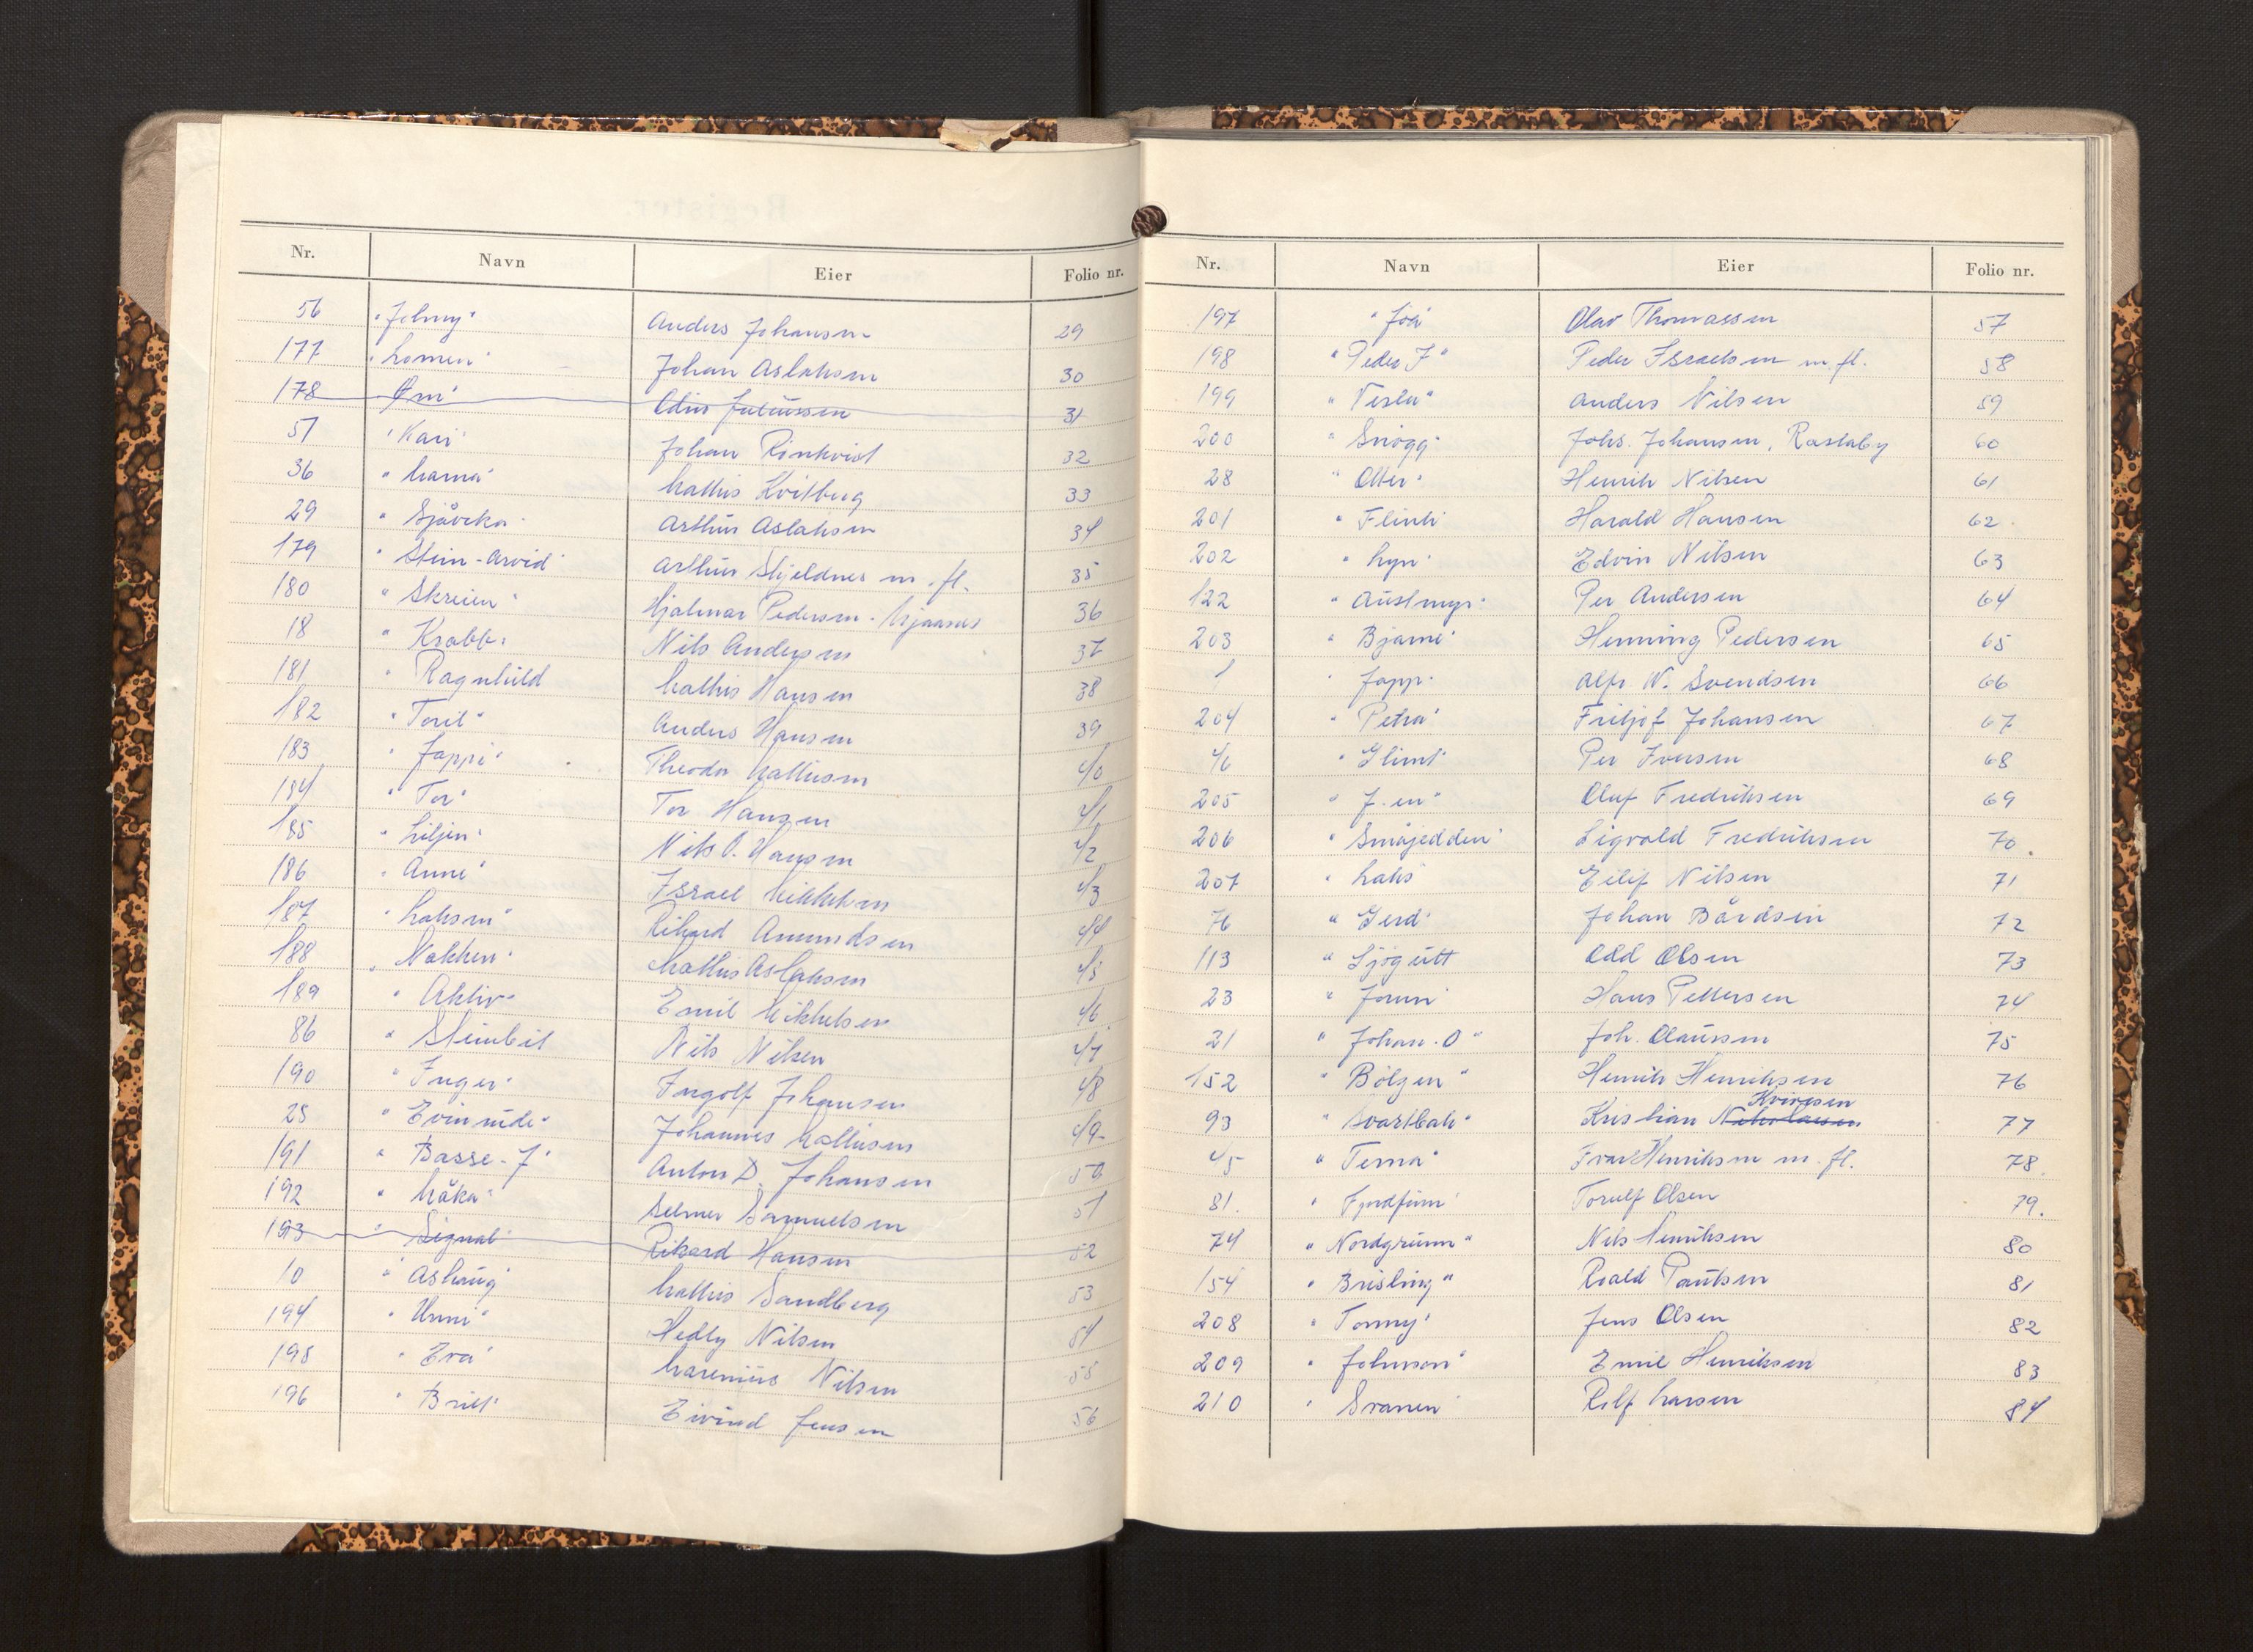 Nr. Navn Eier Folio nr.
56 "Johny" Anders Johansen 29
177 "Lomen" Johan Aslaksen 30
178 Ørn" Edin Juliussen 31
51 "Kari" Johan Rönkvist 32
36 "Marna" Mathis Kvitberg 33
29 "Sjåveka" Arthur Aslaksen 34
179 "Stein-Arvid" Arthur Skjeldnes m.fl. 35
180 "Skreien" Hjalmar Pedersen 36
18 "Krabb" Nils Andersen 37
181 "Ragnhild Mathis Hansen 38
182 "Toril" Anders Hansen 39
183 "Jappi" Theodor Mathisen 40
184 "Tor" Tor Hansen 41
185 "Liljen" Nils O. Hansen 42
186 "Anne" Israel Mikkelsen 43
187 "Laksen" Rikard Amundsen 44
188 "Nøkken" Mathis Aslaksen 45
189 "Aktiv" Emil Mikkelsen 46
86 "Steinbit Nils Nilsen 47
190 "Inger" Ingolf Johansen 48
25 "Evinrude" Johannes Mathisen 49
191 "Basse-J" Anton D. Johansen 50
192 "Måka" Selmer Samuelsen 51
193 "Signal" Rikard Hansen 52
10 "Åshaug" Mathis Sandberg 53
194 "Unni" Hedly Nilsen 54
195 "Eva" Marenius Nilsen 55
196 "Britt" Eivind Jensen 56
Nr. Navn Eier Folio nr.
197 "Joa" Olav Thomassen 57
198 "Peder J" Peder Israelsen m.fl. 58
199 "Vesla" Anders Nilsen 59
200 "Snögg" Johs. Johansen, Rastaby 60
28 "Otter" Henrik Nilsen 61
201 "Flink" Harald Hansen 62
202 "Lyn" Edvin Nilsen 63
122 "Austmyr" Per Andersen 64
203 "Bjarne" Henning Pedersen 65
1 "Japp" Alfr. N. Svendsen 66
204 "Petra" Fritjof Johansen 67
46 "Glimt" Per Iversen 68
205 "J-en" Oluf Fredriksen 69
206 "Småjedden" Sigvald Fredriksen 70
207 "Laks Eilif Nilsen 71
76 "Gerd" Johan Bårdsen 72
113 "Sjøgutt Odd Olsen 73
23 "Jorun" Hans Pettersen 74
21 "Johan. O" Joh. Olaussen 75
152 "Bölgen" Henrik Henriksen 76
Kvivesen
93 "Svartbak" Kristian Nikolaisen 77
45 "Terna" Ivar Henriksen m.fl. 78
81. "Fjordfinn" Torulf Olsen 79.
74 "Nordgrunn" Nils Henriksen 80
154 "Brisling" Roald Paulsen 81
208 "Tonny" Jens Olsen 82
209 "Johnson" Emil Henriksen 83
210 "Svanen Rolf Larsen 84